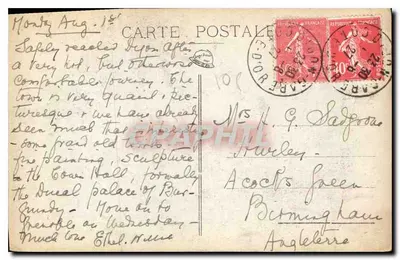 Monday Aug. 1st
CARTE POSTALE
Safely reached Dijon after
a very hot, but otherwise
comfortable journey. The
town is very quaint & pic-
turesque & we have already
seen much that
some grand old
fine painting, sculpture
in the Town Hall, formally
the Ducal palace of Bur-
gundy. Move on to
Grenoble on Wednesday.
Much love Ethel.
10c
Mrs J. G.
Acocks Green
Birmingham
Angleterre